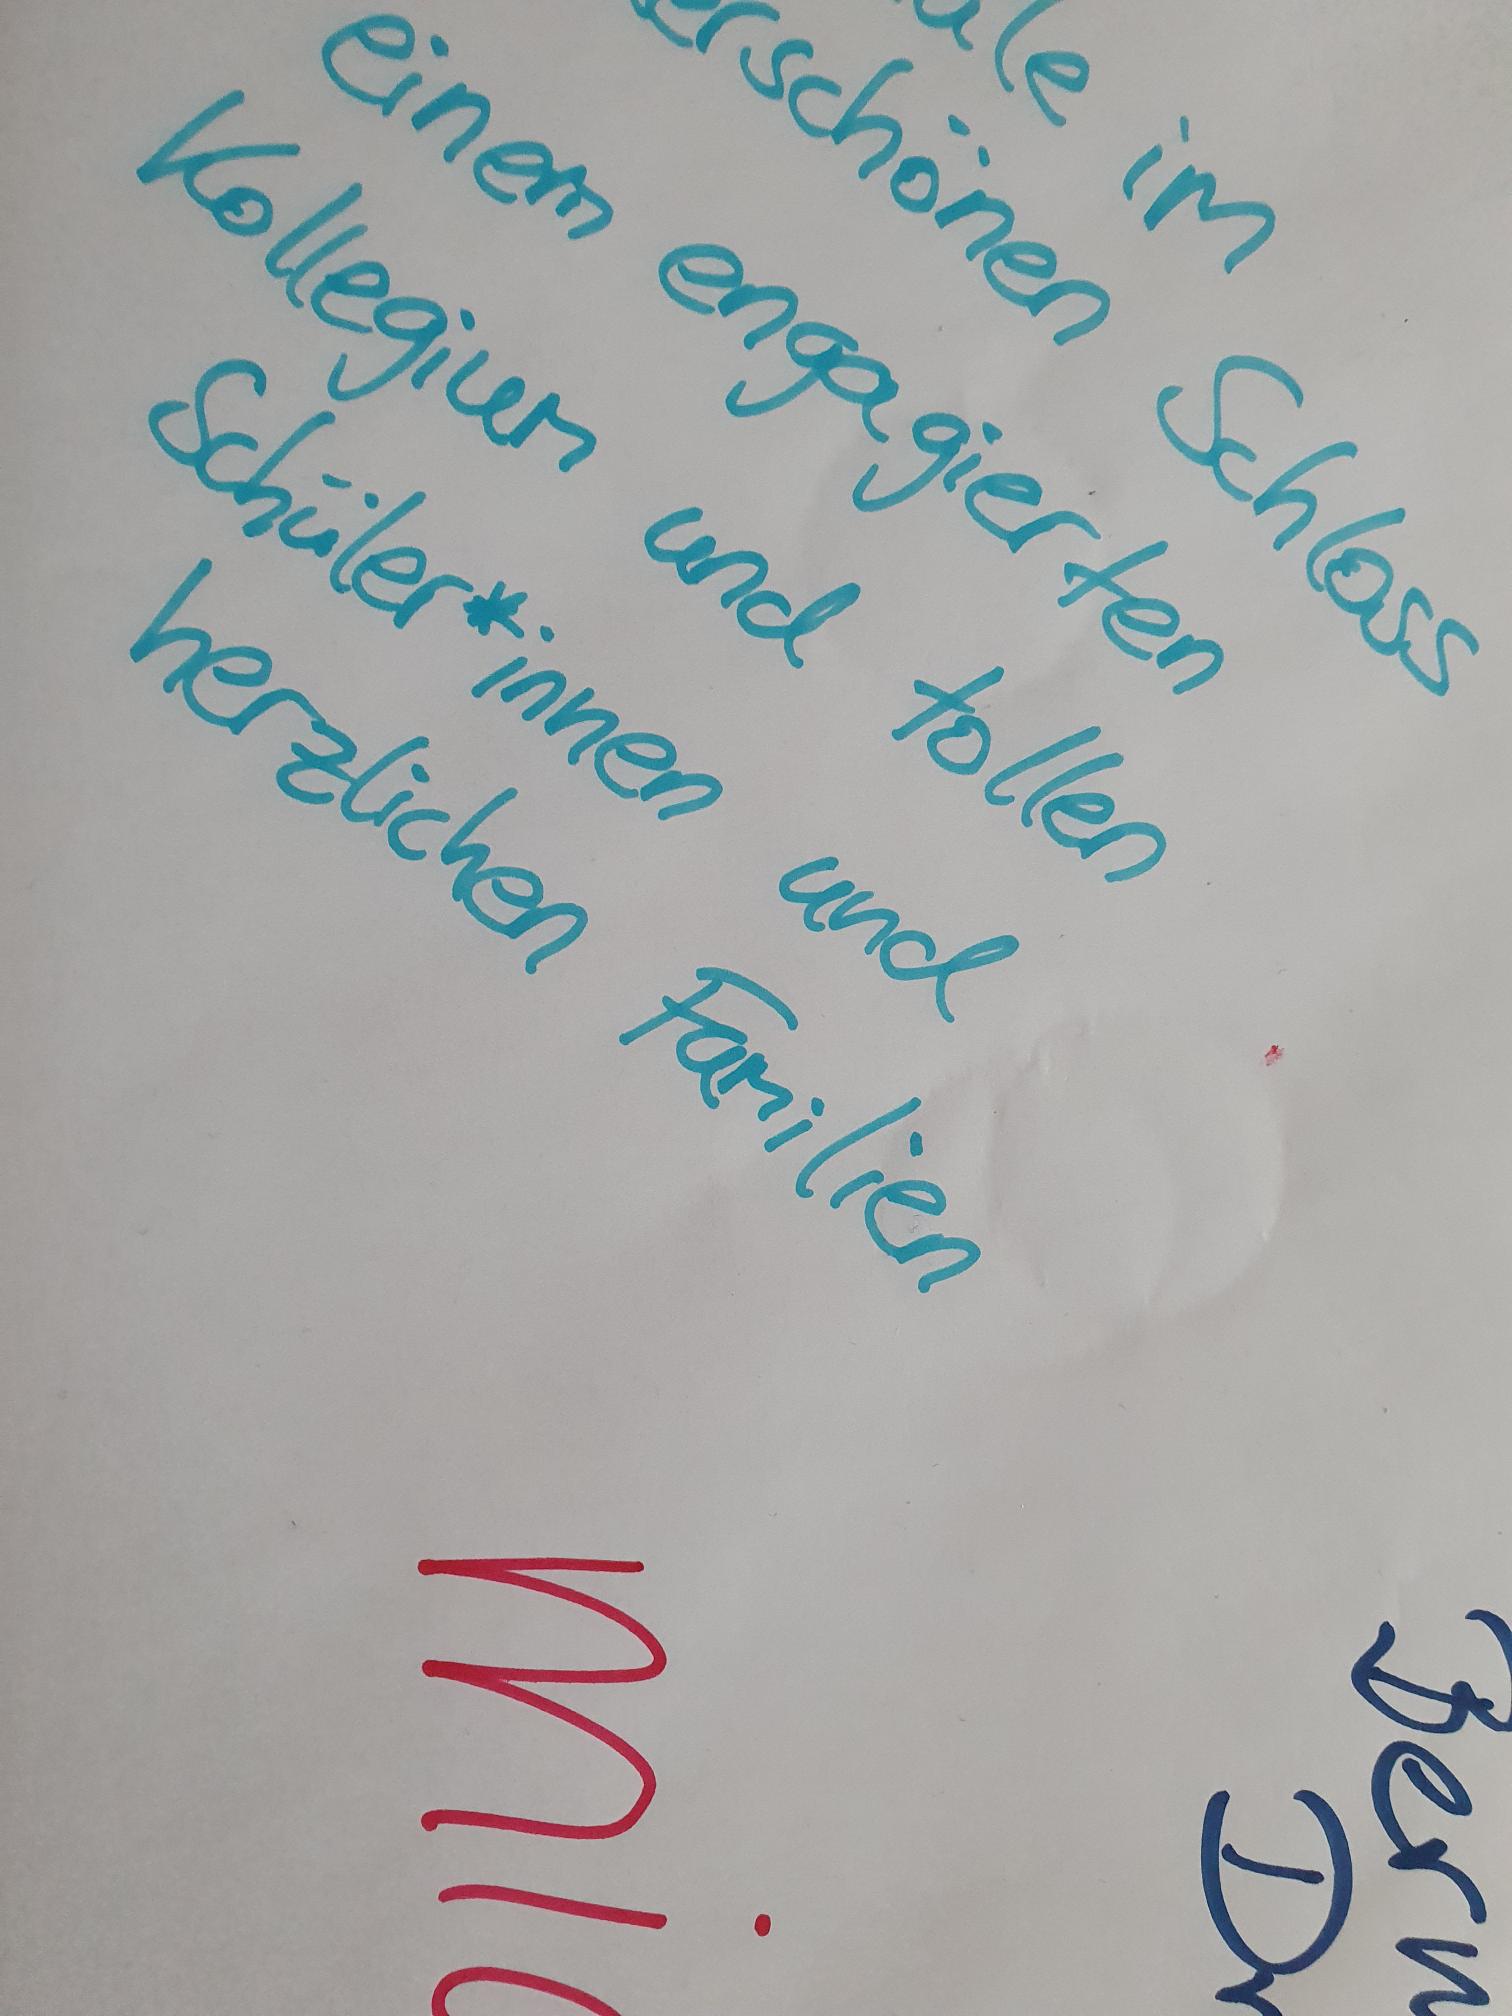 im
schönen Schloss
einem engagierten
Kollegium und tollen
Schüler*innen und
herzlichen Familien